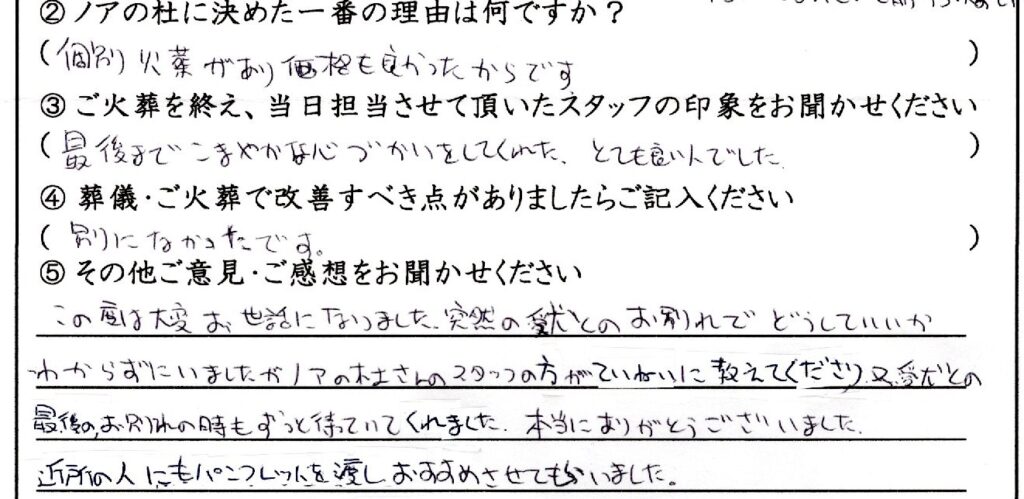 ② ノアの杜に決めた一番の理由は何ですか？
(個別火葬があり価格も良かったからです)
③ ご火葬を終え、当日担当させて頂いたスタッフの印象をお聞かせください
(最後までこまやかな心づかいをしてくれた、とても良い人でした。)
④ 葬儀・ご火葬で改善すべき点がありましたらご記入ください
(別になかったです。)
⑤ その他ご意見・ご感想をお聞かせください
この度は大変お世話になりました。突然の愛犬とのお別れでどうしていいか
わからずにいましたがノアの杜さんのスタッフの方がていねいに教えてくださり又、愛犬との
最後のお別れの時もずっと待っていてくれました。本当にありがとうございました。
近所の人にもパンフレットを渡しおすすめさせてもらいました。